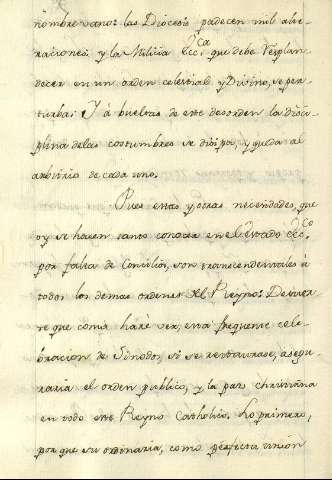 nombre vano: las Diocesis padecen mil alte-
raciones y la Milicia Ecc.ca que debe resplan-
decer en un orden celestial y Divino, se per-
turba: Y á bueltas de este desorden la disci-
plina delas costumbres se disipa, y queda al
arbitrio de cada uno.
Pues estas y otras necesidades, que
oy se hacen tanto conocer en el Estado Ecc.co
por falta de Concilios, son transcendentales á
todos los demas ordenes del Reyno: De suer-
te que como haré ver, esta frequente cele-
bracion de Sinodos, si se restaurase, asegu-
raria el orden publico, y la paz christiana
en todo este Reyno Catholico. Lo primero,
por que su ordinaria, como perfecta union